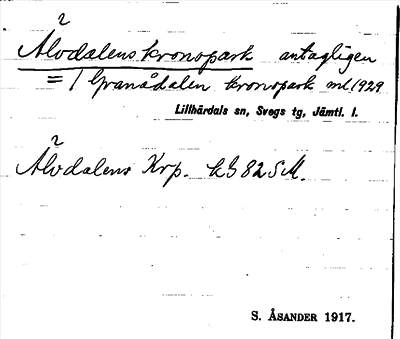 Älvdalens kronopark antagligen
= Granådalen kronopark ml 1929
Lillhärdals sn, Svegs tg, Jämtl. l.
Älvdalens Krp. kG 82 SM.
S. ÅSANDER 1917.